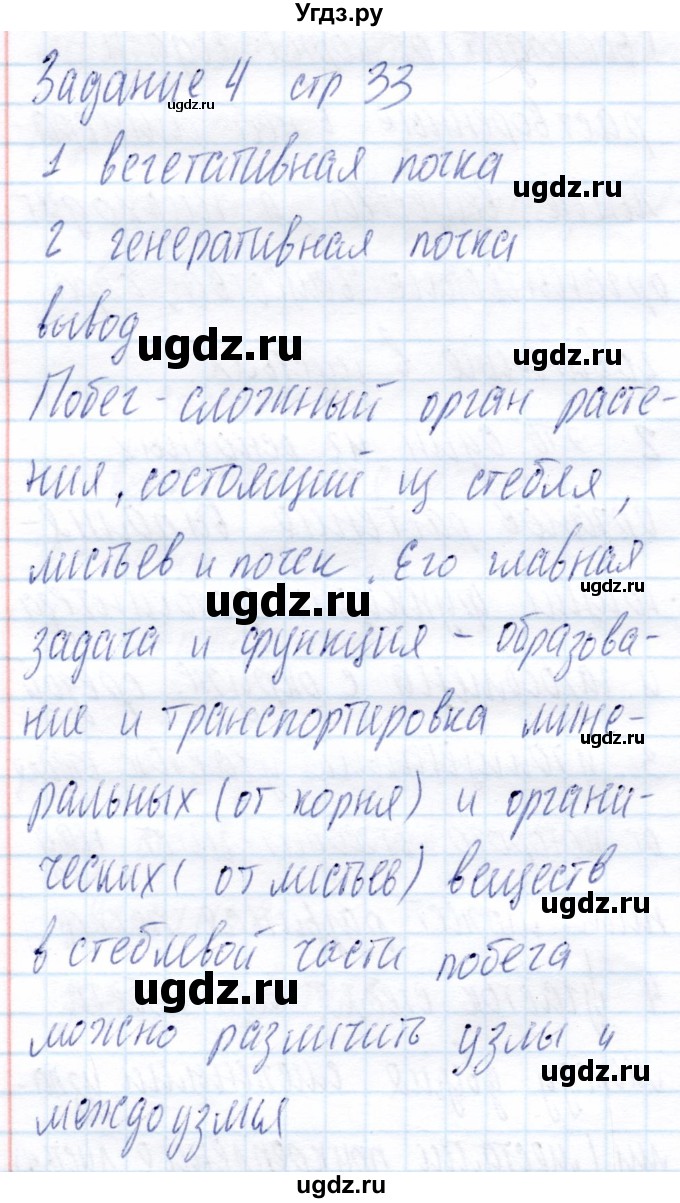 Угдз.ру
Задание 4 стр 33
ugdz.ru
1 вегетативная почка
ugdz.ru
2 генеративная почка
вывод
ugdz.ru
ugdz.ru
Побег - сложный орган расте-
ния, состоящий из стебля,
листьев и почек. Его главная
ugdz.ru
ugdz.ru
задача и функция - образова-
ние и транспортировка мине-
ugdz.ru
ральных (от корня) и органи-
ческих (от листьев) веществ
ugdz.ru
в стеблевой части побега
ugdz.ru
можно различить узлы и
ugdz.ru
междоузлия
ugdz.ru